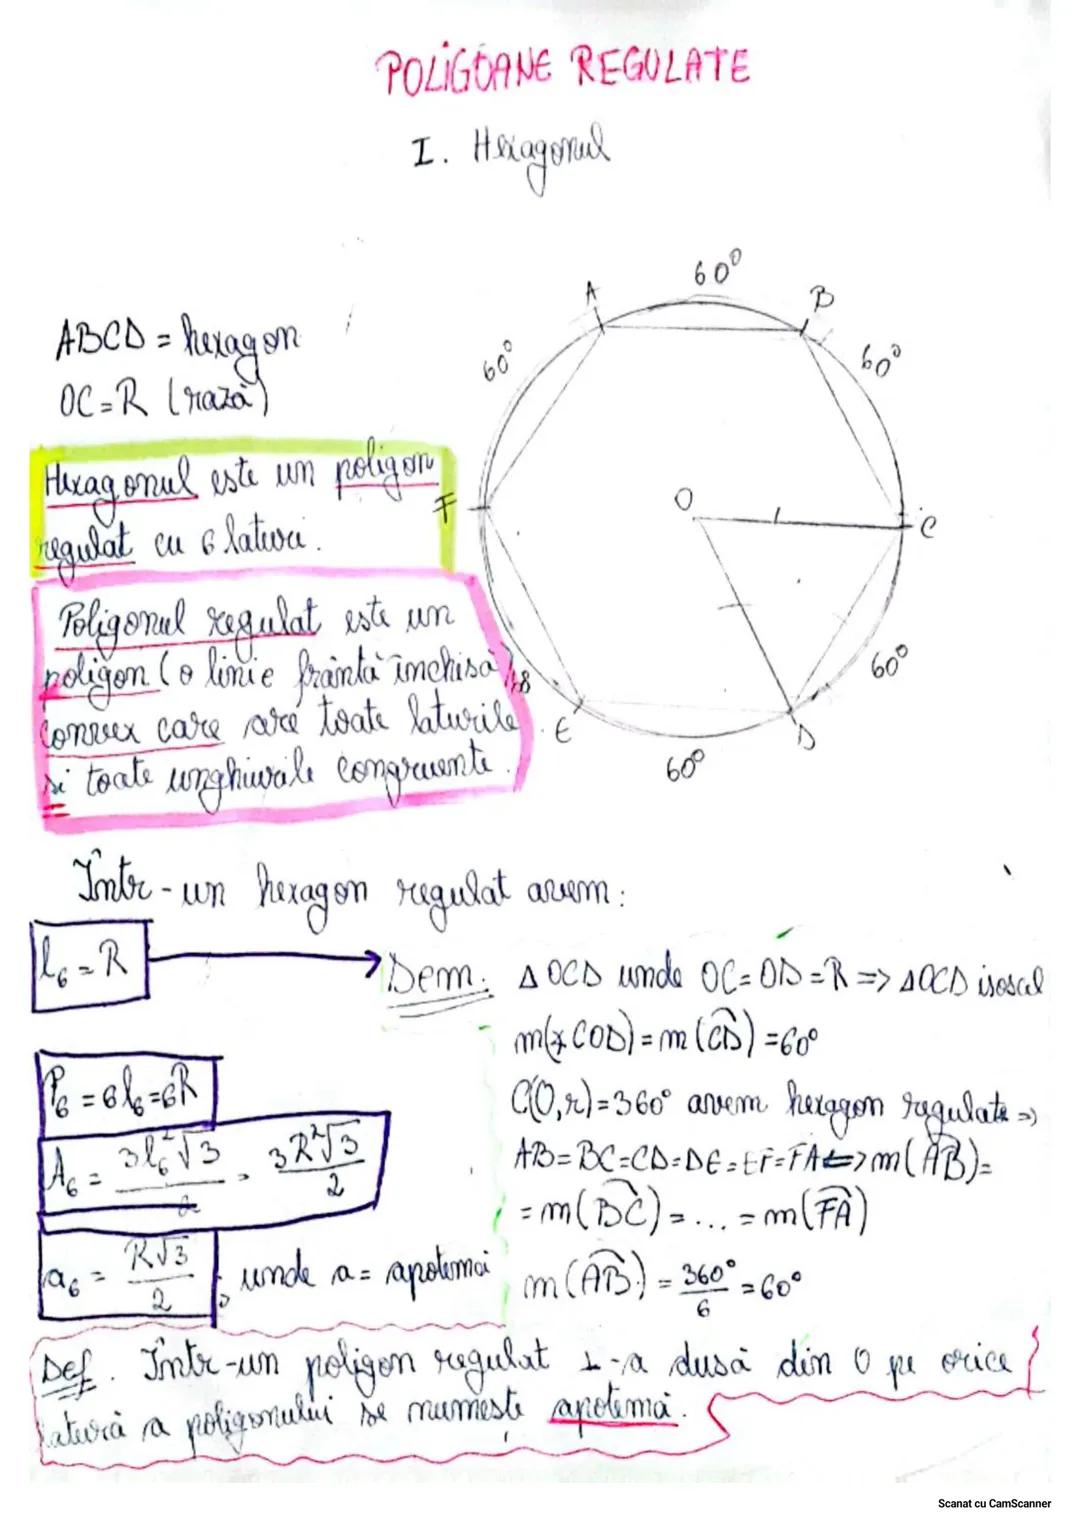 POLIGOANE REGULATE
I. Hexagonul
60°
A
B
60°
60°
ABCD = hexagon
OC=R (rază)
Hexagonul este un poligon
regulat cu 6 laturi.
F
O
C
Poligonul regulat este un
poligon (o linie frântă închisă)
convex care are toate laturile
si toate unghiurile congruente.
60°
E
D
60°
Într-un hexagon regulat avem:
l₆=R
Dem. Δ OCD unde OC=OD=R => ΔOCD isoscel
m(∢COD)=m(C͡D)=60°
P₆=6l₆=6R
C(O,r)=360° avem hexagon regulat =>
A₆ = 3l₆²√3/2 = 3R²√3/2
AB=BC=CD=DE=EF=FA<=>m(A͡B)=
=m(B͡C)=...=m(F͡A)
a₆ = R√3/2, unde a= apotemă
m(A͡B)=360°/6=60°
Def. Într-un poligon regulat ⊥-a dusă din O pe orice
latură a poligonului se numeste apotemă.
Scanat cu CamScanner